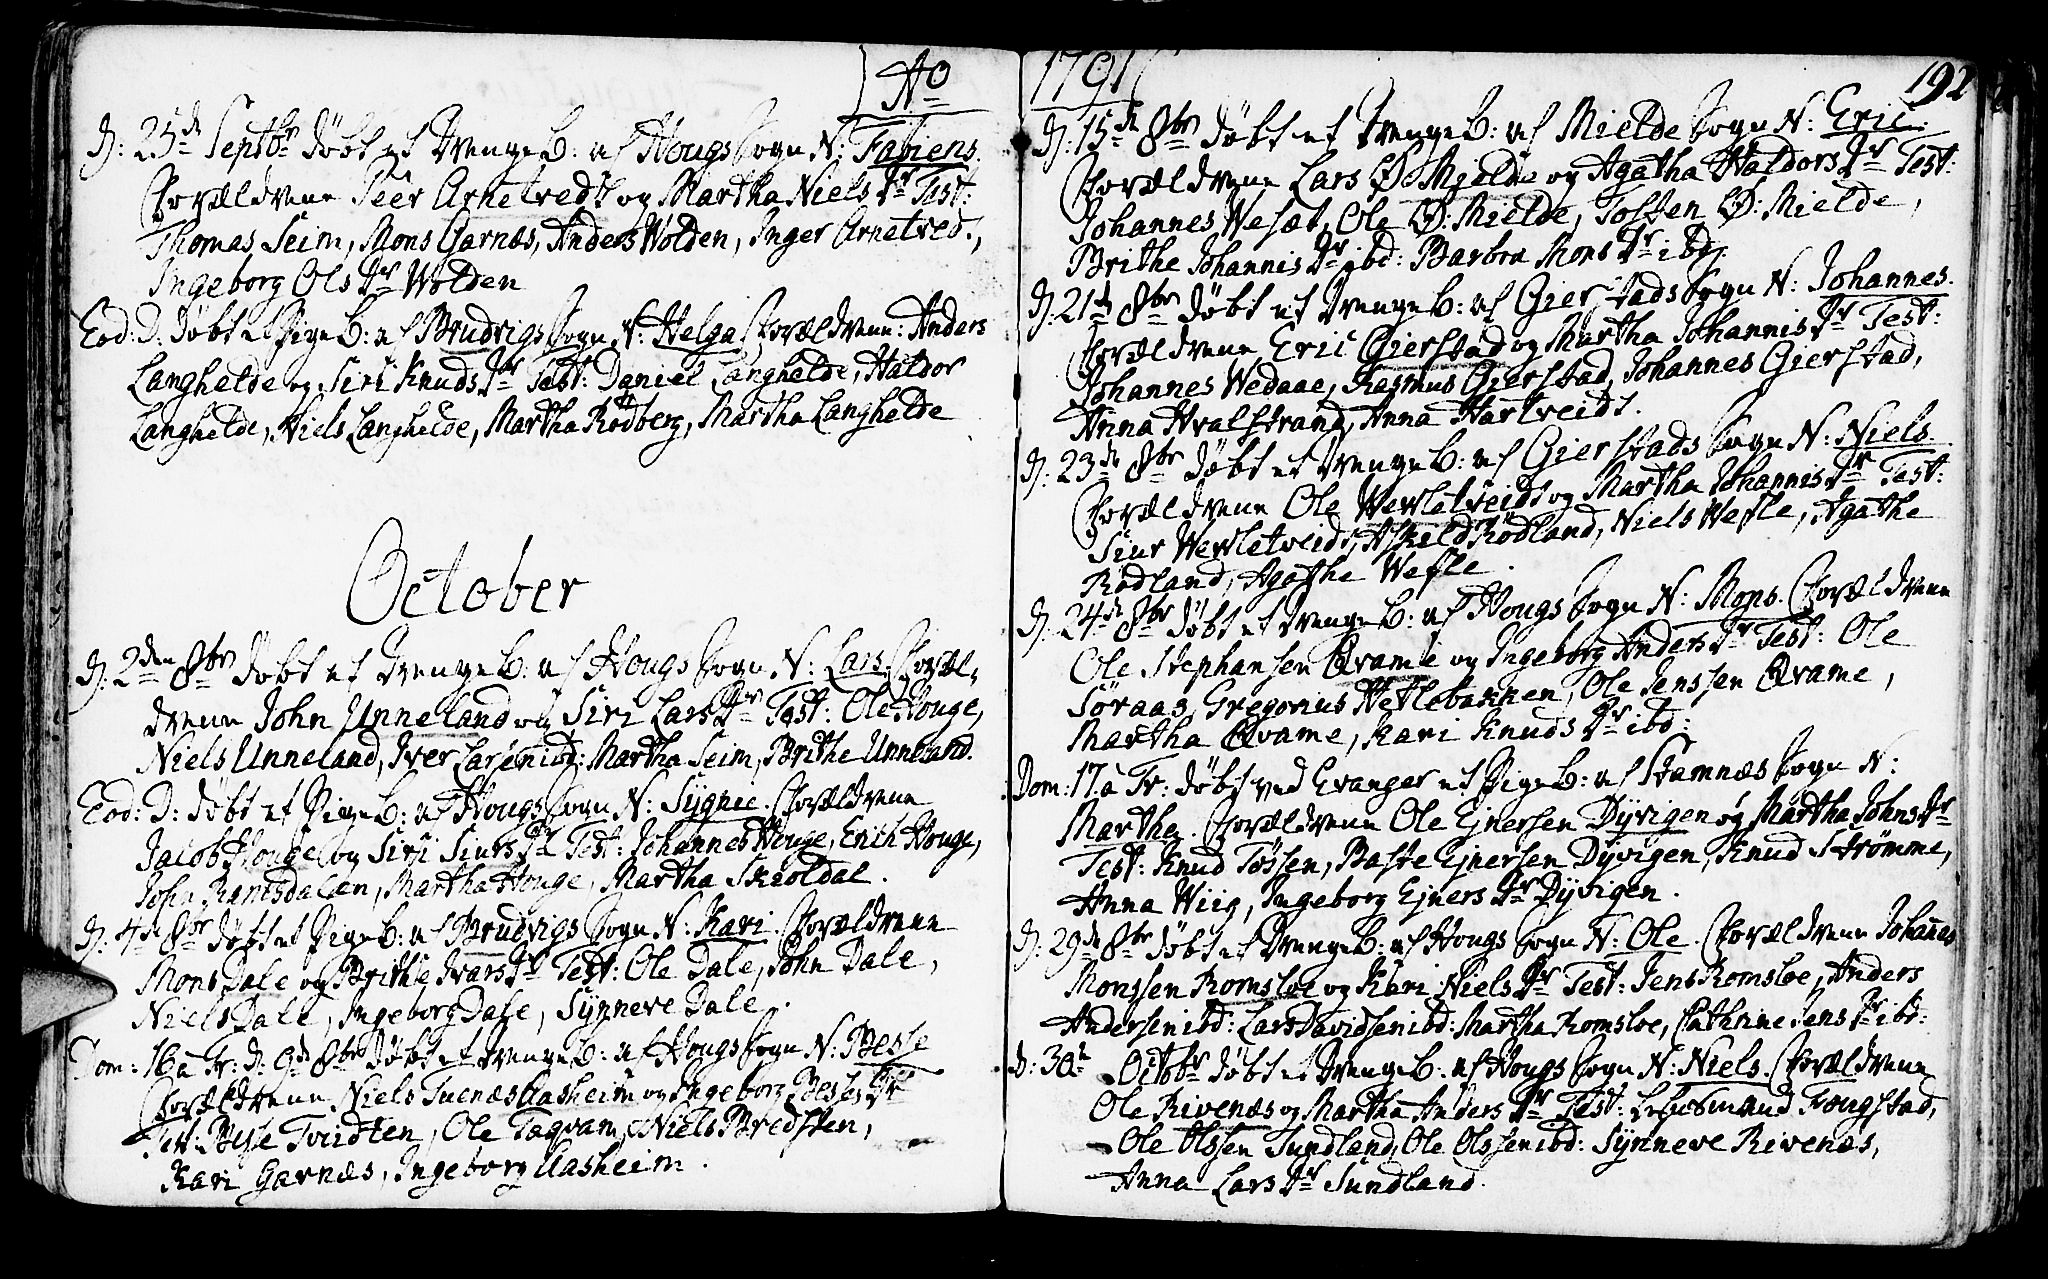 Ao
D: 25de Septbr døbt et Drenge B: af Hougs Sogn N: Fabiens.
Forældrene Peer Arnetvedt og Martha Niels Dr Test:
Thomas Seim, Mons Garnæs, Anders Wolden, Inger Arnetved.,
Ingeborg Ols Dr Wolden
Eod: D: døbt et Pige B: af Brudvigs Sogn N: Helga Forældrene: Anders
Langhelde og Siri Knuds Dr Test: Daniel Langhelde, Haldor
Langhelde, Niels Langhelde, Martha Rødberg, Martha Langhelde
October
D: 2den 8br døbt et Drenge B: af Hougs Sogn N: Lars. Foræl-
drene John Unneland og Siri Lars Dr Test: Ole Houge,
Niels Unneland, Iver Larsen ibd: Martha Seim, Brithe Unneland.
Eod: D: døbt et Pige B: af Hougs Sogn N: Sygnie. Forældrene
Jacob Houge og Siri Siurs Dr Test: Johannes Houge, Erich Houge,
John Ramsdalen, Martha Houge, Martha Skioldal.
D: 4de 8br døbt et Pige B: af Brudvigs Sogn N: Kari. Forældrene
Mons Dale og Brithe Ivars Dr Test: Ole Dale, John Dale,
Niels Dale, Ingeborg Dale, Synneve Dale.
Dom: 16 a Tr: d: 9de 8br døbt et Drenge B: af Hougs Sogn N: Besse
Forældrene Niels Tuenæs Aasheim og Ingeborg Besses Dr
Test: Besse Tvidten, Ole Taqvam, Niels Bredsten,
Kari Garnæs, Ingeborg Aasheim.
1791
192
D: 15de 8br døbt et Drenge B: af Mielde Sogn N: Eric.
Forældrene Lars Ø: Mielde og Agatha Haldors Dr Test:
Johannes Wesæt, Ole Ø: Mielde, Tosten Ø: Mielde,
Brithe Johannis Dr ibd: Barbra Mons Dr ibd.
D: 21de 8br døbt et Drenge B: af Gierstads Sogn N: Johannes.
Forældrene Eric Gierstad og Martha Johannis Dr Test:
Johannes Wedaae, Rasmus Gierstad, Johannes Gierstad,
Anna Hvalstrand, Anna Hartveidt.
D: 23de 8br døbt et Drenge B: af Gierstads Sogn N: Niels.
Forældrene Ole Wevletveidt og Martha Johannis Dr Test:
Siur Wevletveidt, Askeld Rødland, Niels Wefle, Agathe
Rødland, Agathe Wefle.
D: 24de 8br døbt et Drenge B: af Hougs Sogn N: Mons. Forældrene
Ole Stephansen Qvame og Ingeborg Anders Dr Test: Ole
Søraas, Gregorius Hetlebakken, Ole Jenssen Qvame,
Martha Qvame, Kari Knuds Dr ibd:
Dom: 17. a Tr: døbt ved Evanger et Pige B: af Stamnæs Sogn N:
Martha. Forældrene Ole Ejnersen Dyvigen og Martha Johns Dr
Test: Knud Tøssen, Baste Ejnersen Dyvigen, Knud Strømme,
Anna Wiig, Ingeborg Ejners Dr Dyvigen.
D: 29de 8br døbt et Drenge B: af Hougs Sogn N: Ole. Forældrene Johanes
Monssen Romsloe og Kari Niels Dr Test: Jens Romsloe, Anders
Andersen ibd: Lars Davidsen ibd: Martha Romsloe, Cathrine Jens Dr ibd:
D: 30te Octobr døbt et Drenge B: af Hougs Sogn N: Niels. Forældrene
Ole Rivenæs og Martha Anders Dr Test: Fougstad,
Ole Olssen Sundland, Ole Olssen ibd: Synneve Rivenæs,
Anna Lars Dr Sundland.